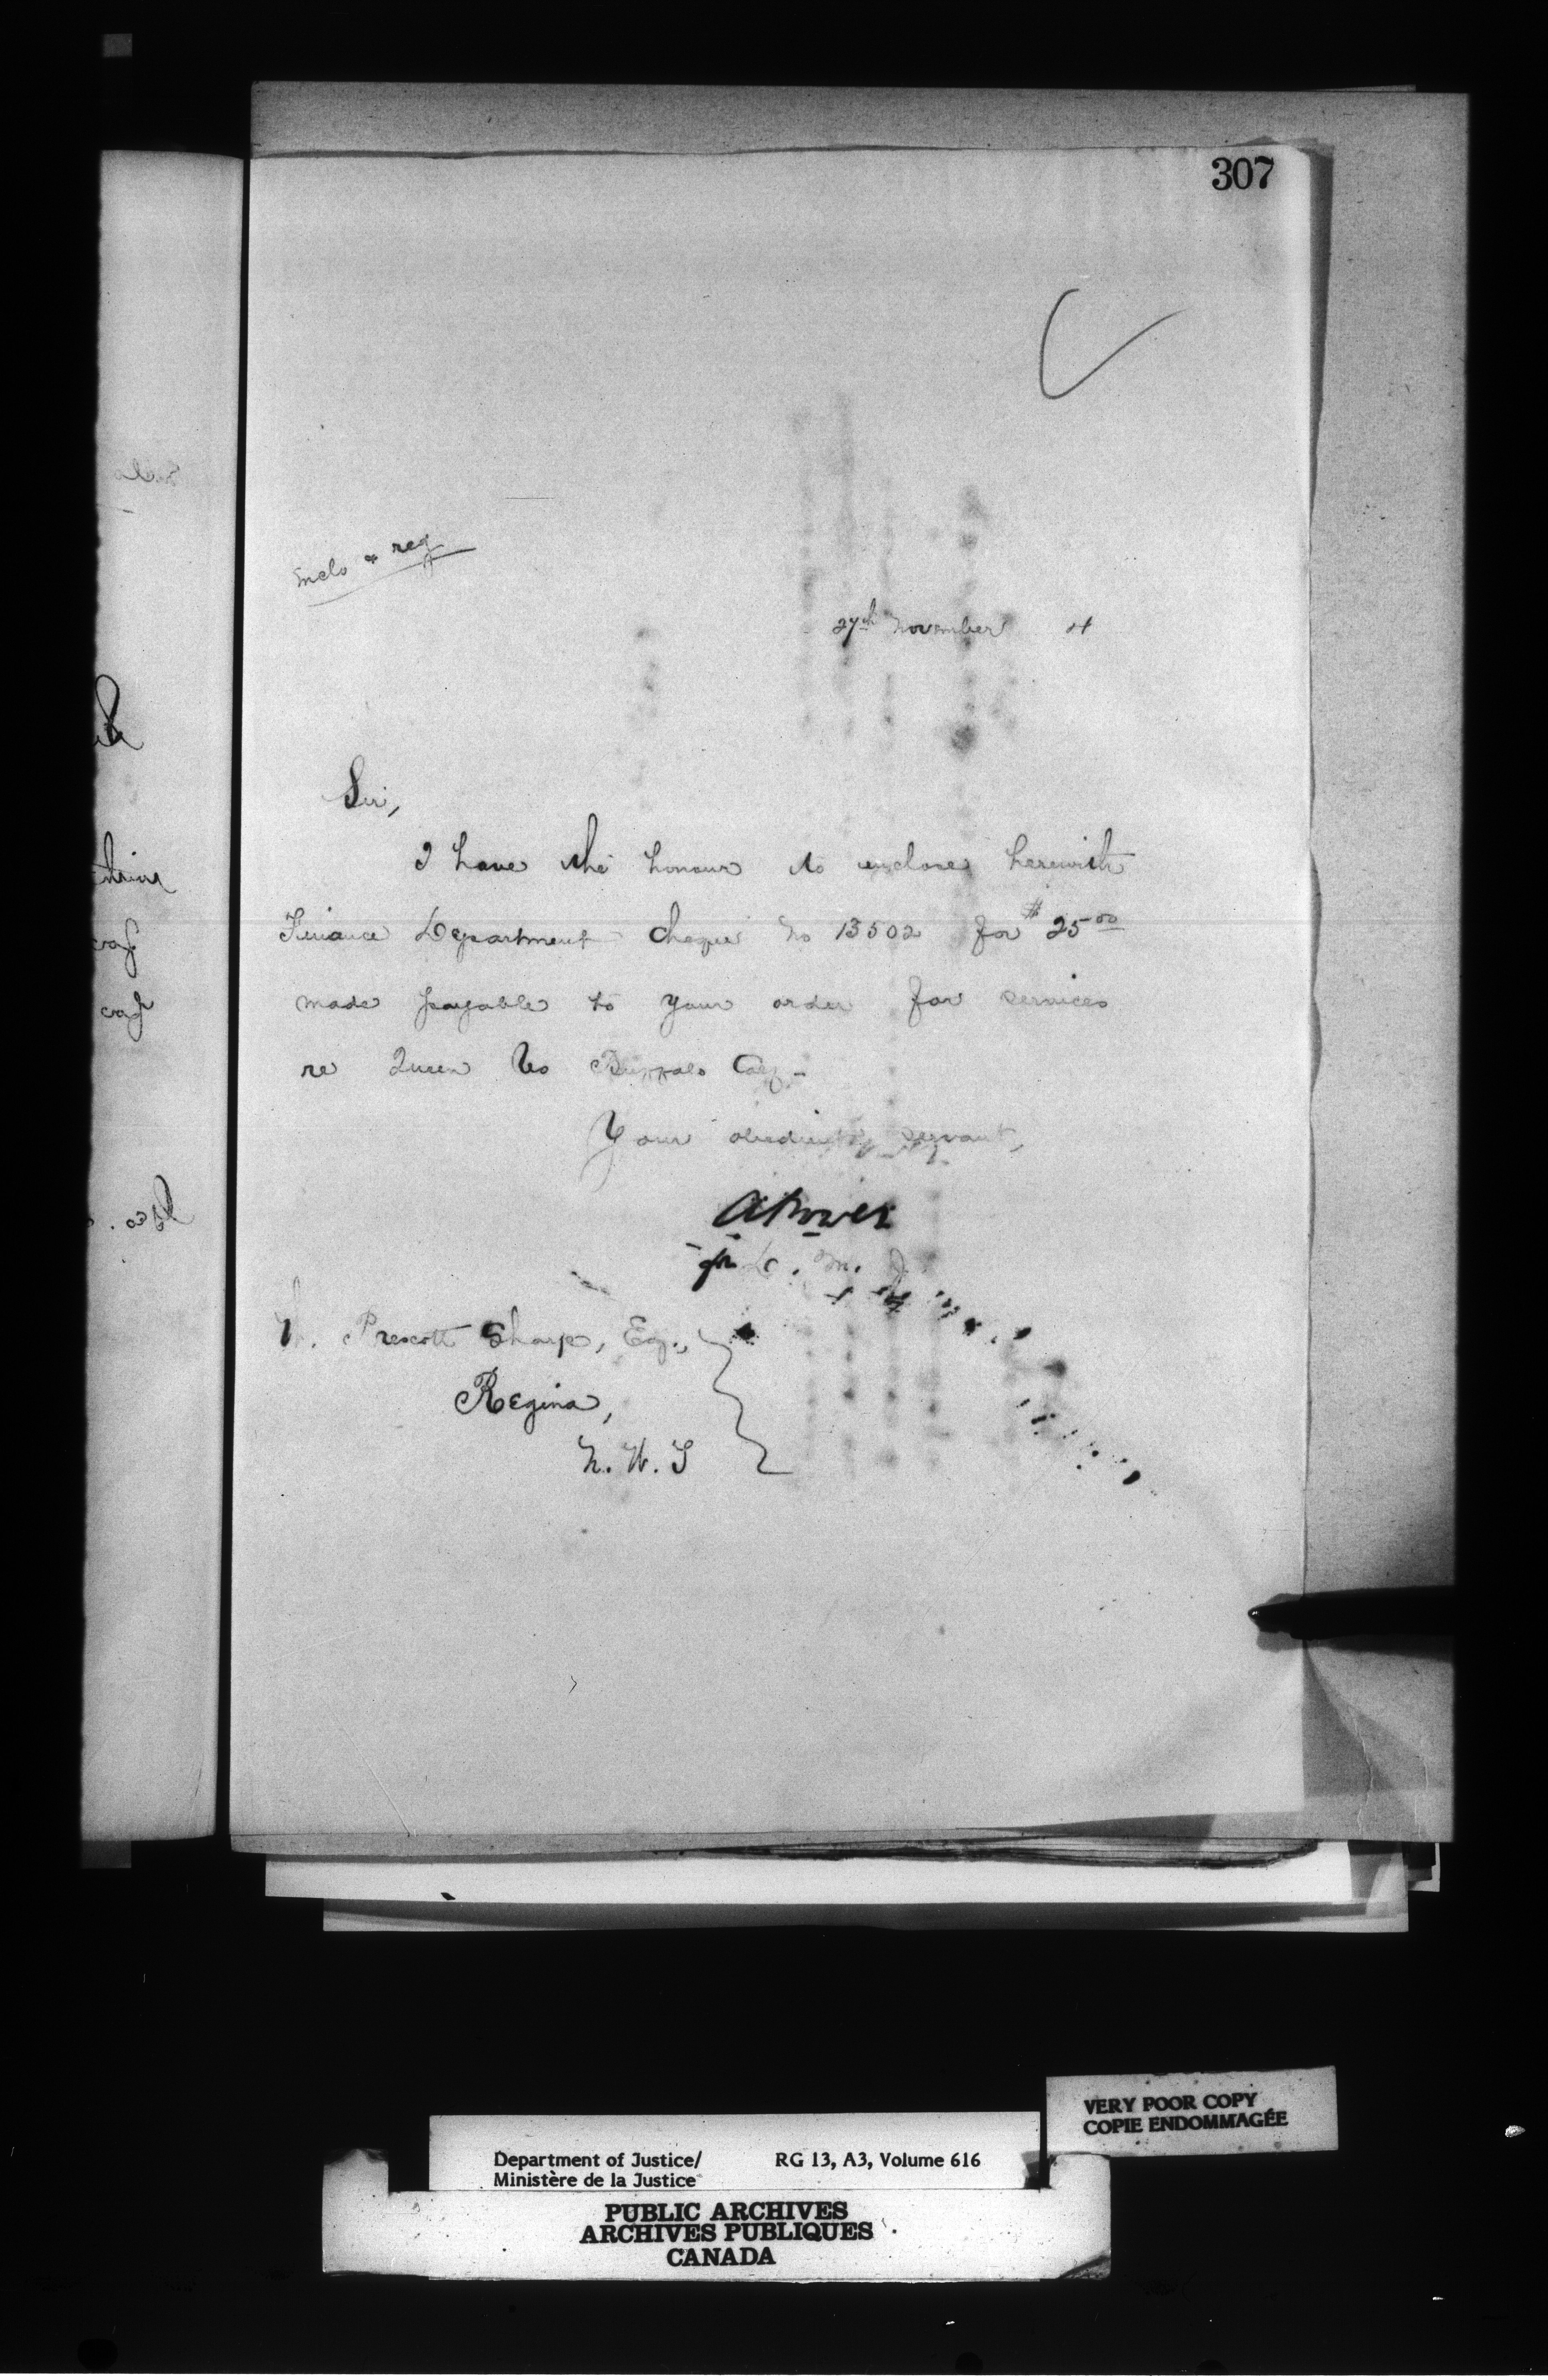 307
enclo & reg
27th November 4
Sir,
I have the honour to enclose herewith
Finance Department cheque No 13502 for $25.00
made payable to your order for services
re Queen vs Buffalo Calf -
Your obedient servant,
A Power
for D. M. J
Prescott Sharp, Esq.,
Regina,
N. W. T
VERY POOR COPY
COPIE ENDOMMAGÉE
Department of Justice/ RG 13, A3, Volume 616
Ministère de la Justice
PUBLIC ARCHIVES
ARCHIVES PUBLIQUES
CANADA